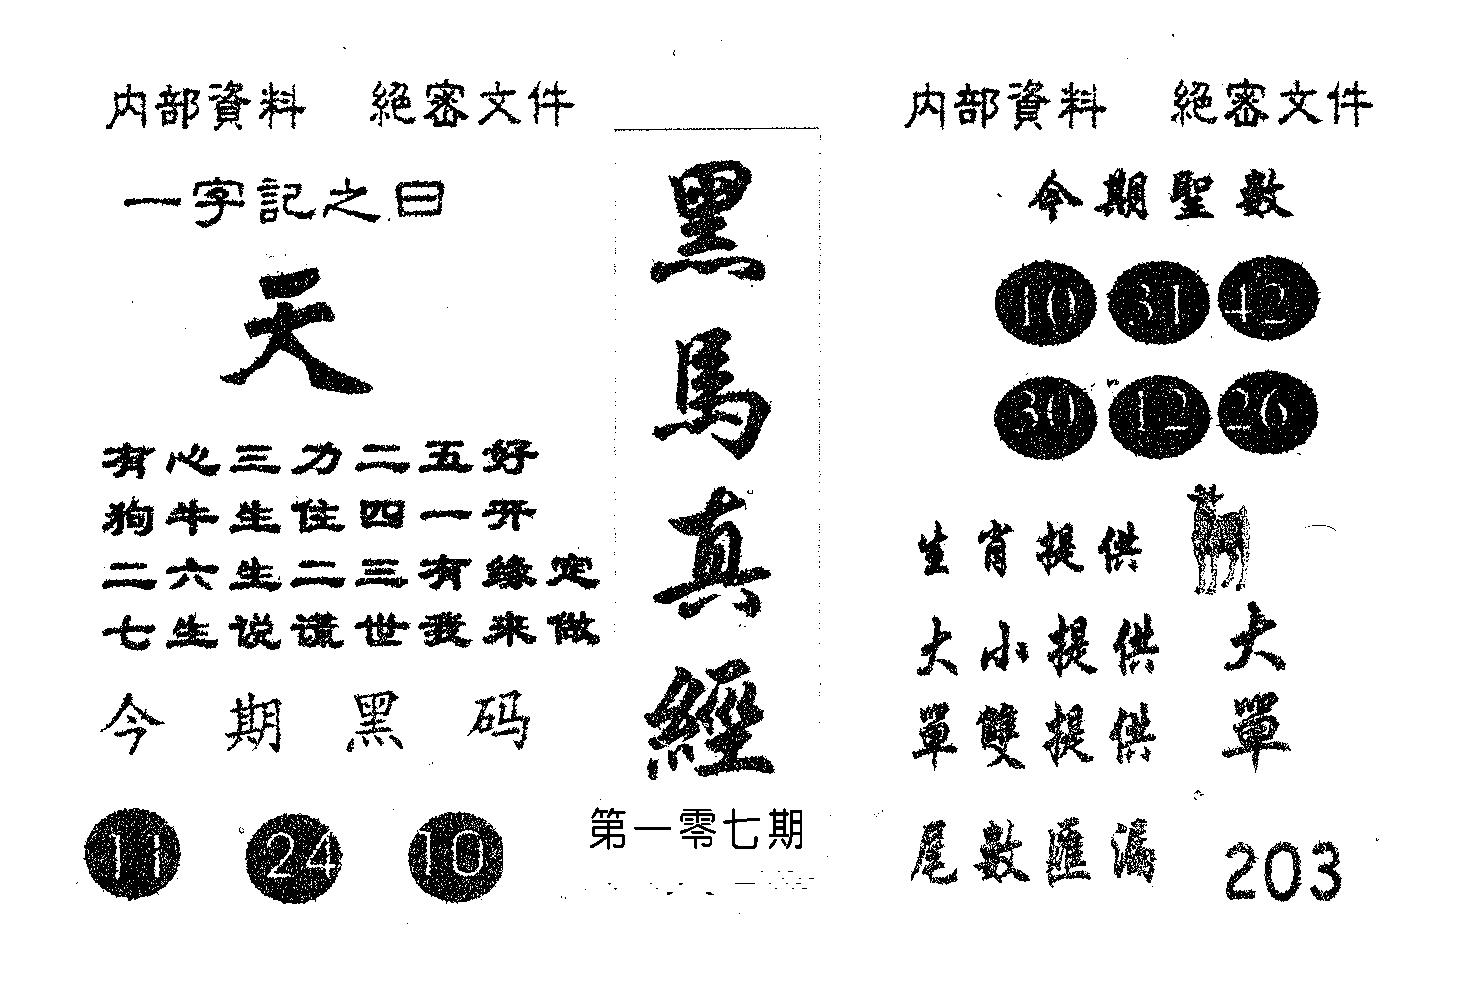 内部資料 絕密文件
一字記之曰
天
有心三力二五好
狗牛生住四一开
二六生二三有緣定
七生说谎世我来做
今期黑码
11 24 10
黑馬真經
第一零七期
内部資料 絕密文件
今期聖數
10 31 42
30 12 26
生肖提供
大小提供 大
單雙提供 單
尾數匯漏 203